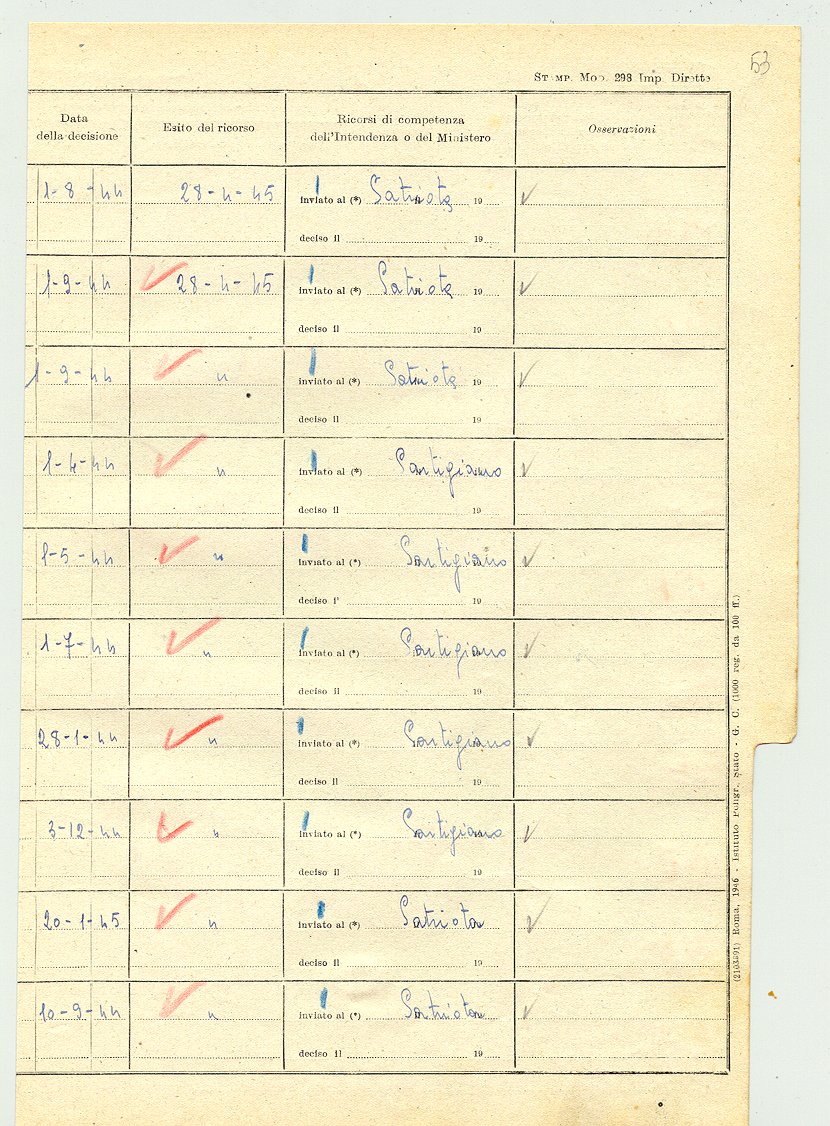 53
STAMP. MOD. 298 Imp. Dirette
Data della decisione
Esito del ricorso
Ricorsi di competenza dell'Intendenza o del Ministero
Osservazioni
1-8-44 28-4-45 inviato al (*) Patriota 19
deciso il 19
1-9-44 28-4-45 inviato al (*) Patriota 19
deciso il 19
1-9-44 " inviato al (*) Patriota 19
deciso il 19
1-4-44 " inviato al (*) Partigiano
deciso il 19
1-5-44 " inviato al (*) Partigiano
deciso il 19
1-7-44 " inviato al (*) Partigiano
deciso il 19
28-1-44 " inviato al (*) Partigiano
deciso il 19
3-12-44 " inviato al (*) Partigiano
deciso il 19
20-1-45 " inviato al (*) Patriota
deciso il 19
10-9-44 " inviato al (*) Patriota
deciso il 19
(2103891) Roma, 1946 - Istituto Poligr. Stato - G. C. (1000 reg. da 100 ff.)